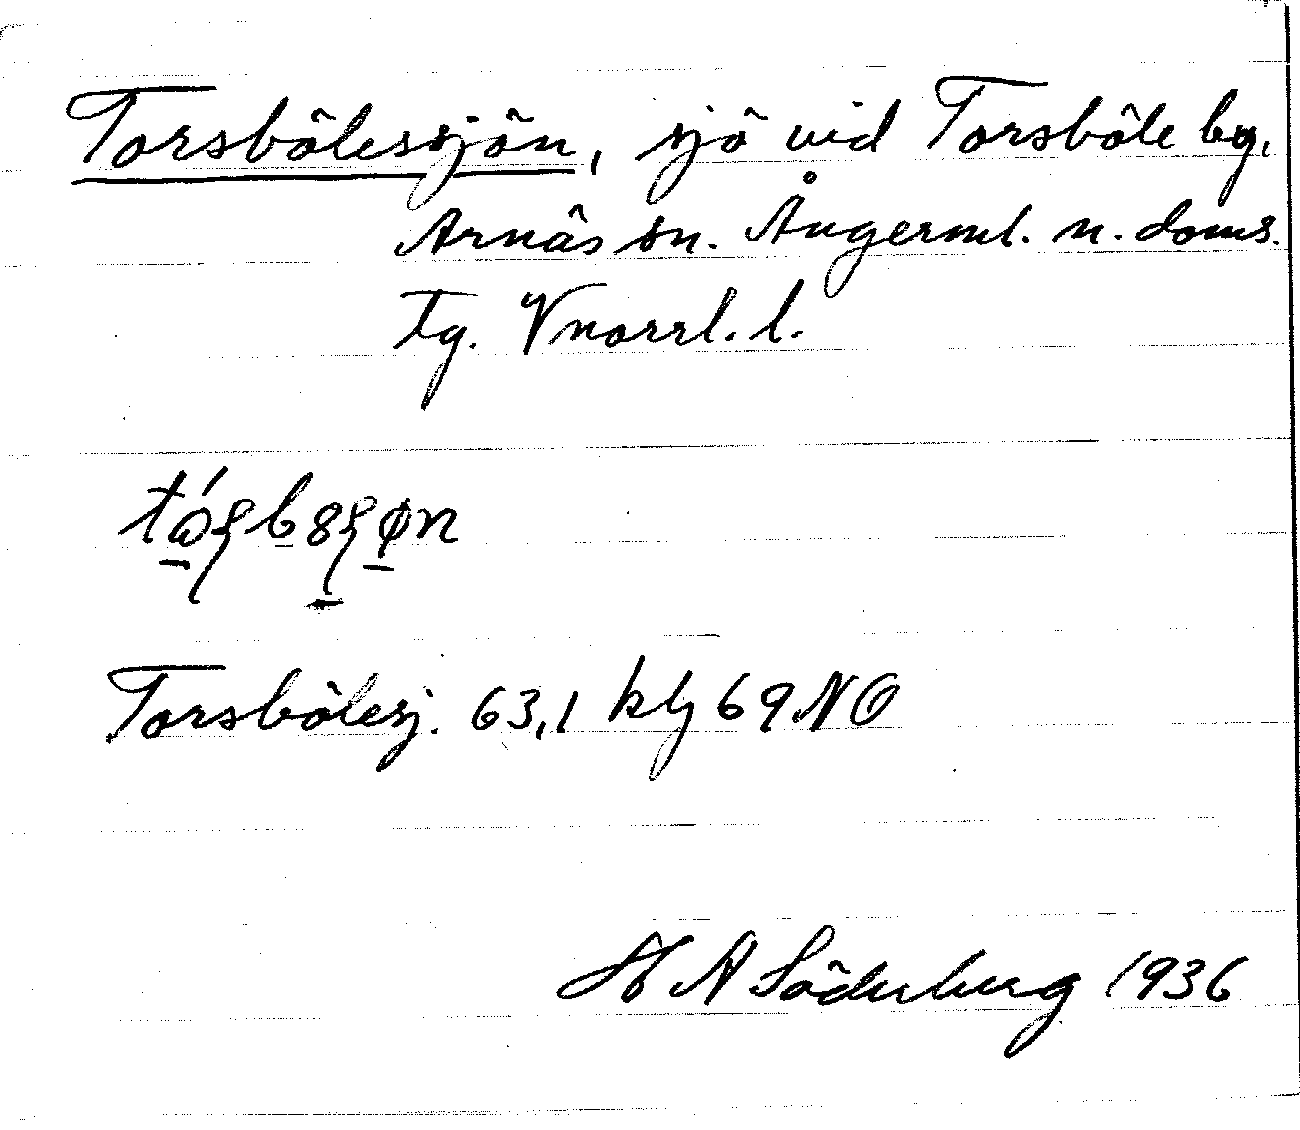 Torsbölessjön, sjö vid Torsböle by,
Arnäs sn. Ångerml. n. doms.
tg. Vnorrl. l.
Torsbölesj. 63,1 klj 69 NO
H A Söderberg 1936